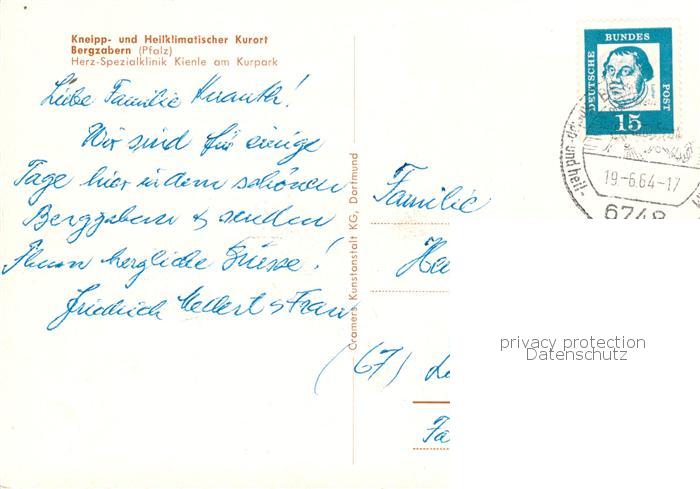 Kneipp- und Heilklimatischer Kurort
Bergzabern (Pfalz)
Herz-Spezialklinik Kienle am Kurpark
Liebe Familie
Wir sind für einige
Tage hier in dem schönen
Bergzabern & senden
Ihnen herzliche Grüsse!
Friedrich & Frau
Cramers Kunstanstalt KG, Dortmund
DEUTSCHE BUNDES POST
15
und heil-
19.-6.64-17
6748
Familie
(67)
privacy protection
Datenschutz